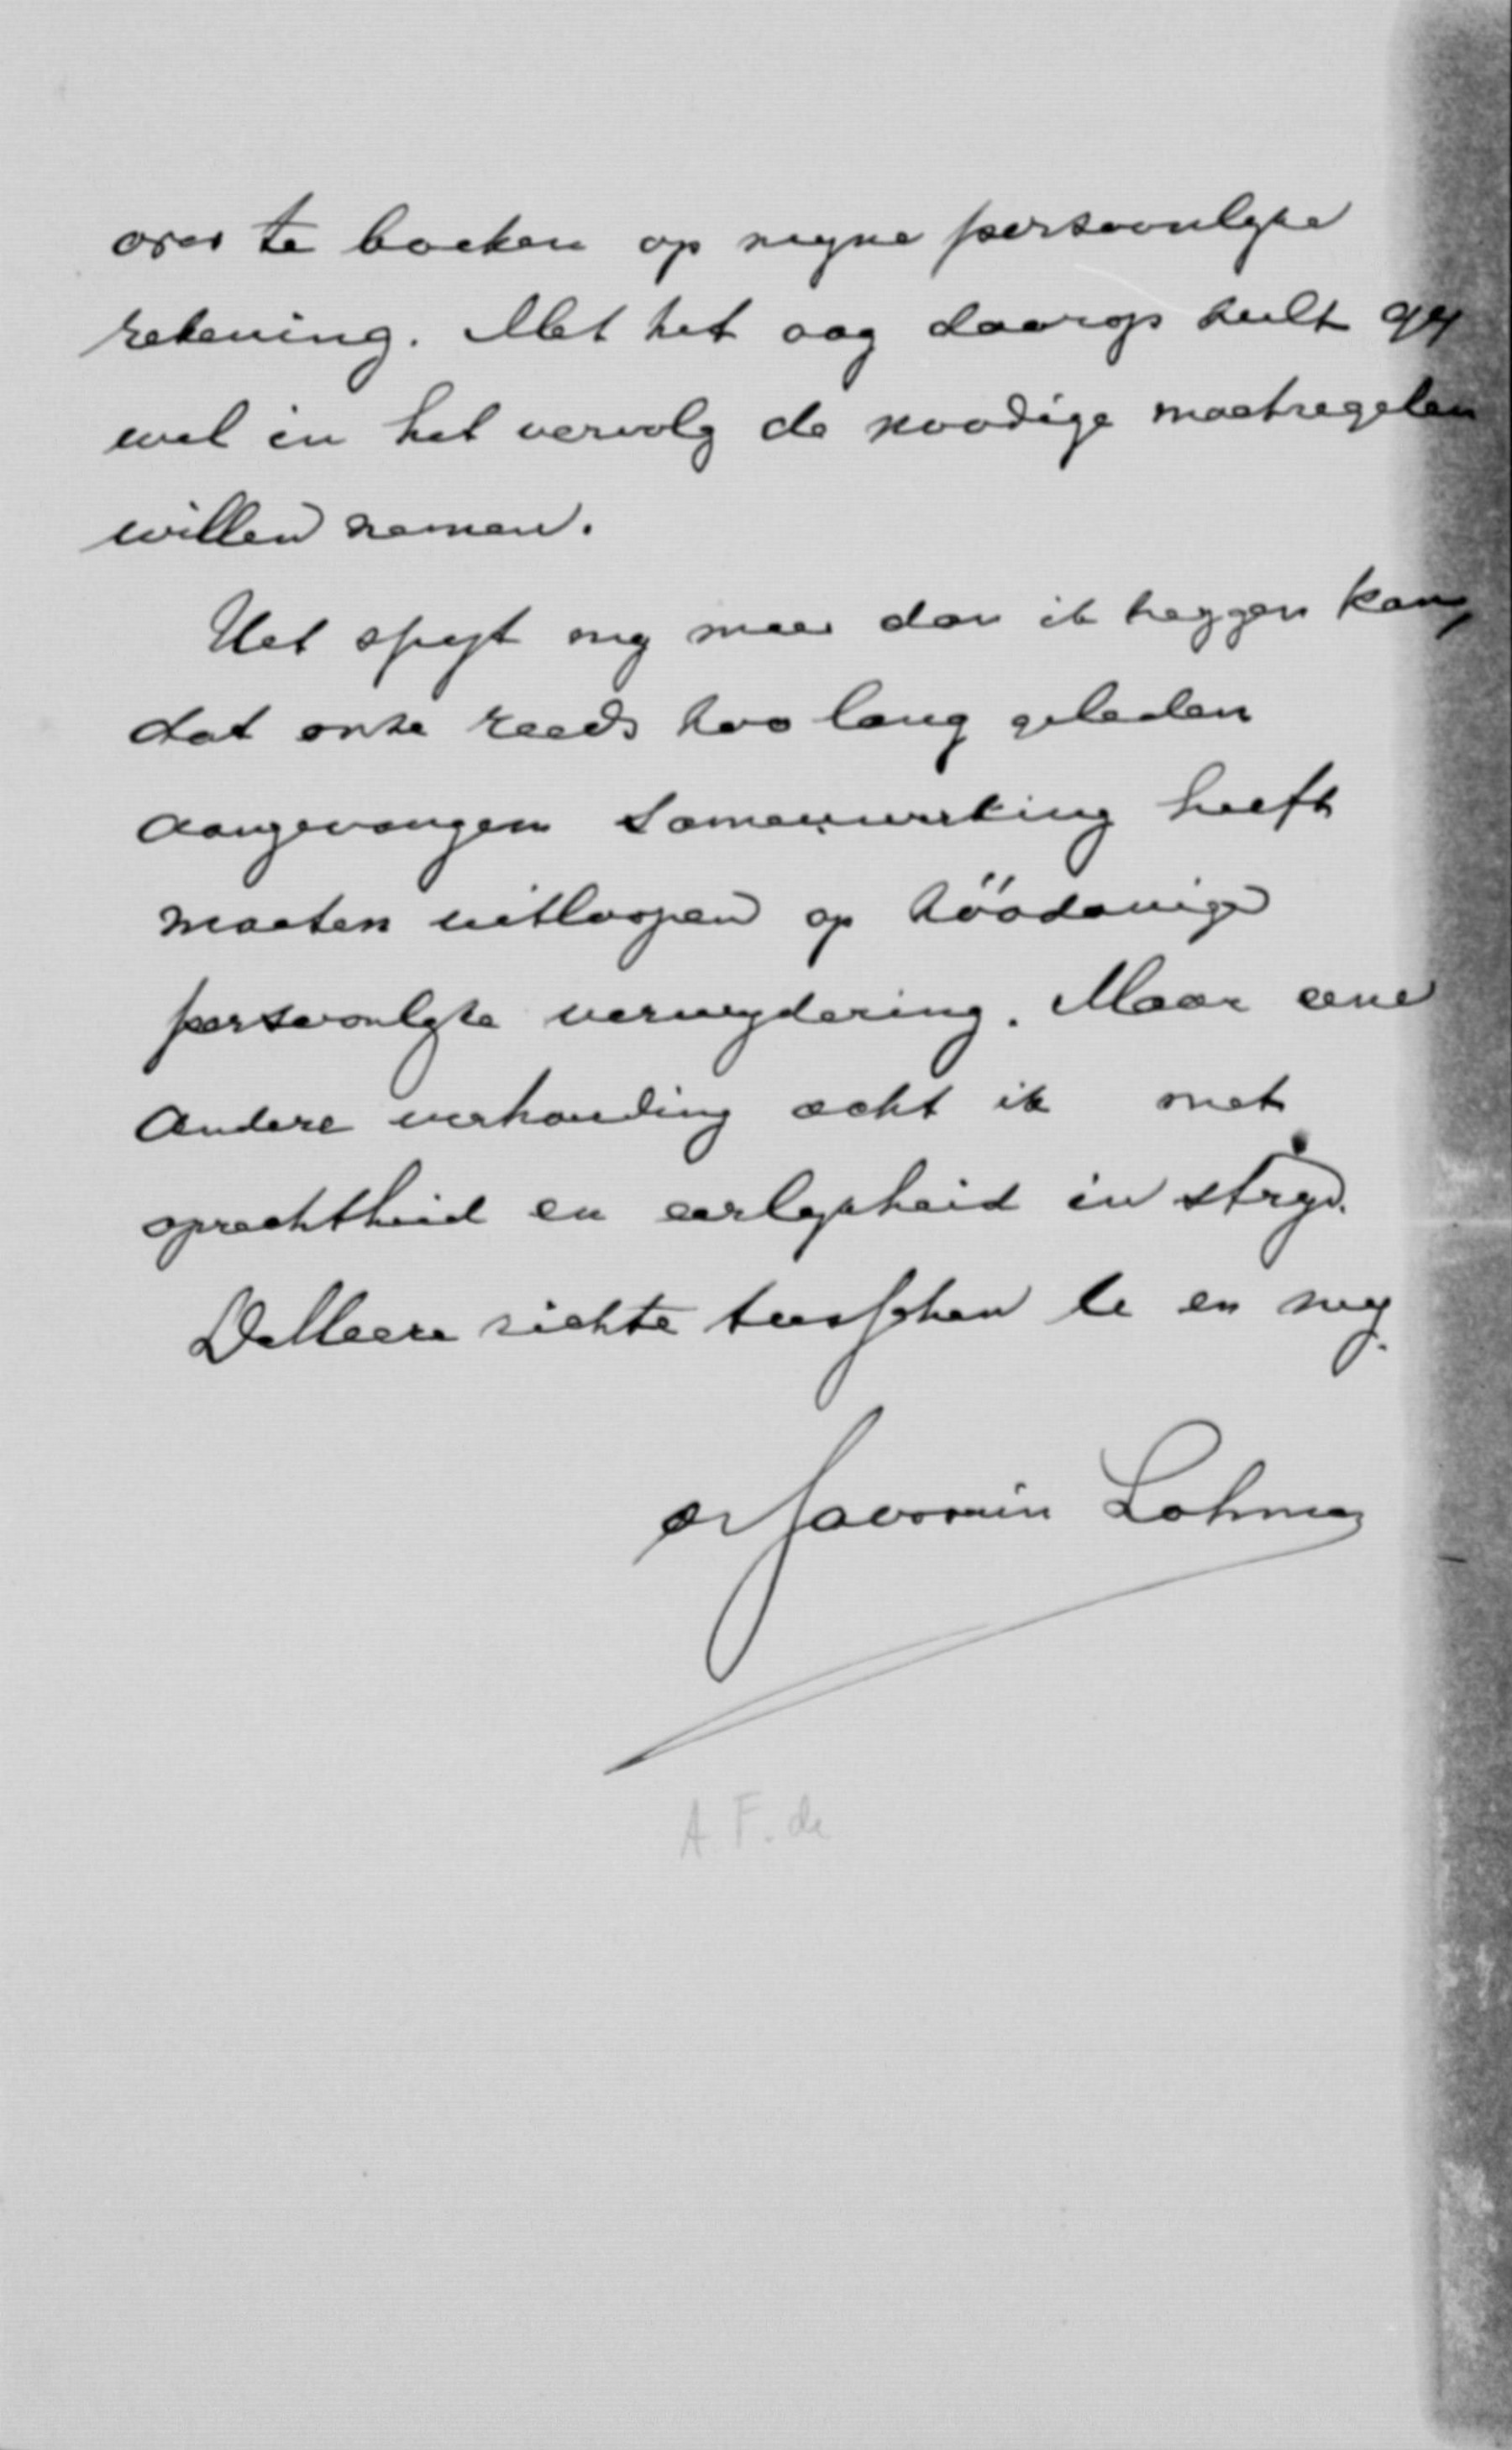 over te boeken op mijne persoonlijke
rekening. Met het oog daarop zult gij
wel in het vervolg de noodige maatregelen
willen nemen.
Het spijt mij meer dan ik zeggen kan,
dat onze reeds zoo lang geleden
aangevangen samenwerking heeft
moeten uitloopen op zóódanige
persoonlijke verwijdering. Maar eene
andere verhouding acht ik met
oprechtheid en eerlijkheid in strijd.
De Heere richte tusschen U en mij.
Savornin Lohman
A. F. de